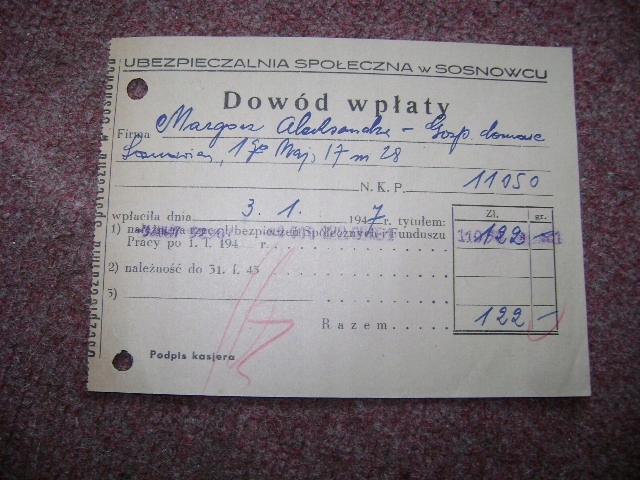 UBEZPIECZALNIA SPOŁECZNA w SOSNOWCU
Dowód wpłaty
Firma Margosz Aleksandra - Gosp. domowe
Sosnowiec, 1go Maj, 17 m 28
N. K. P. 11950
wpłaciła dnia 3. 1. 1947 r. tytułem:
Zł. gr.
1) należność Ubezpieczeń Społecznych i Funduszu 122 -
Pracy po 1. I. 194 r.
2) należność do 31. I. 45
3)
Razem 122 -
Podpis kasjera
Ubezpieczalnia Społeczna w Sosnowcu